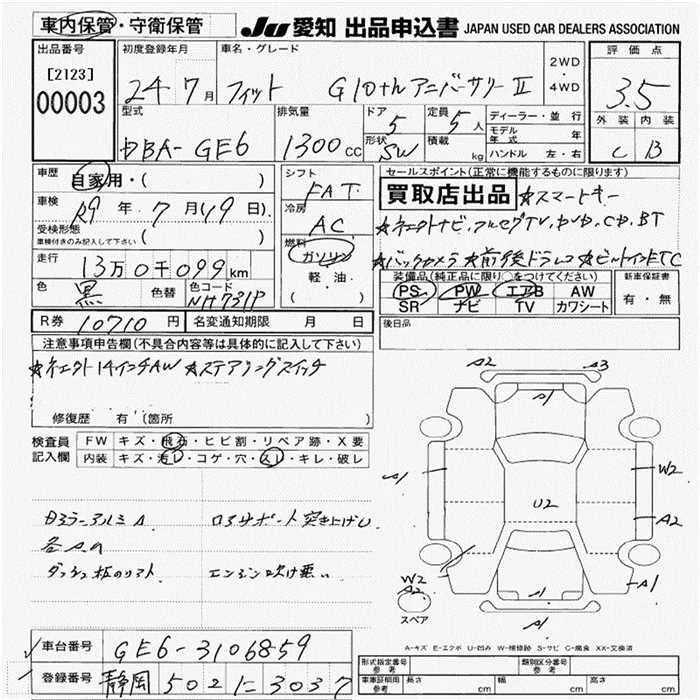 車内保管・守衛保管
JU 愛知 出品申込書 JAPAN USED CAR DEALERS ASSOCIATION
出品番号 初度登録年月 車名・グレード 2WD・4WD 評価点
[2123] 00003 24 7月 フィット G10th アニバーサリーⅡ 3.5
型式 排気量 ドア 定員 ディーラー・並行 外装 内装
DBA-GE6 1300cc 5 5人 モデル年式 年 C B
形状 SW 積載 kg ハンドル 左・右
車歴 自家用・( ) シフト セールスポイント(正常に機能するものに限ります)
FAT 買取店出品 ☆スマートキー
車検 R9年 7月(19日) 冷房
受検形態 車検付きのみ記入して下さい ( ) AC ☆ネエクトナビ、フルセグTV、DVD、CD、BT
走行 燃料 ☆バックカメラ ☆前後ドラレコ ☆ビルトインETC
13万0千099km ガソリン 装備品(純正品に限り○をつけてください) 新車保証書
色 黒 色替 色コード NH731P 軽・油・ PS PW エアB AW 有・無
SR ナビ TV カワシート
R券 10710円 名変通知期限 月 日 後日品
注意事項申告欄(不具合内容等は具体的に記入して下さい)
☆ネエクト14インチAW ☆ステアリングスイッチ
修復歴 有(箇所 )
検査員 FW キズ・飛石・ヒビ割・リペア跡・X要
記入欄 内装 キズ・汚レ・コゲ・穴・スレ・キレ・破レ
A2 A3
A1
A1 W2
U2
A2
ロアサポート突き上げU
エンジン吹け悪い
W2
A2 A1 A1
スペア A1
A-キズ E-エクボ U-凹み W-補修跡 S-サビ C-腐食 XX-交換済
車台番号 GE6-3106859
登録番号 静岡 502 に 3037
形式指定番号 参考 類別区分番号 参考
車庫証明用 参考 長さ cm 幅 cm 高さ cm